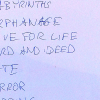 LABYRINTHS
ORPHANAGE
VE FOR LIFE
RD AND DEED
TE
RROR